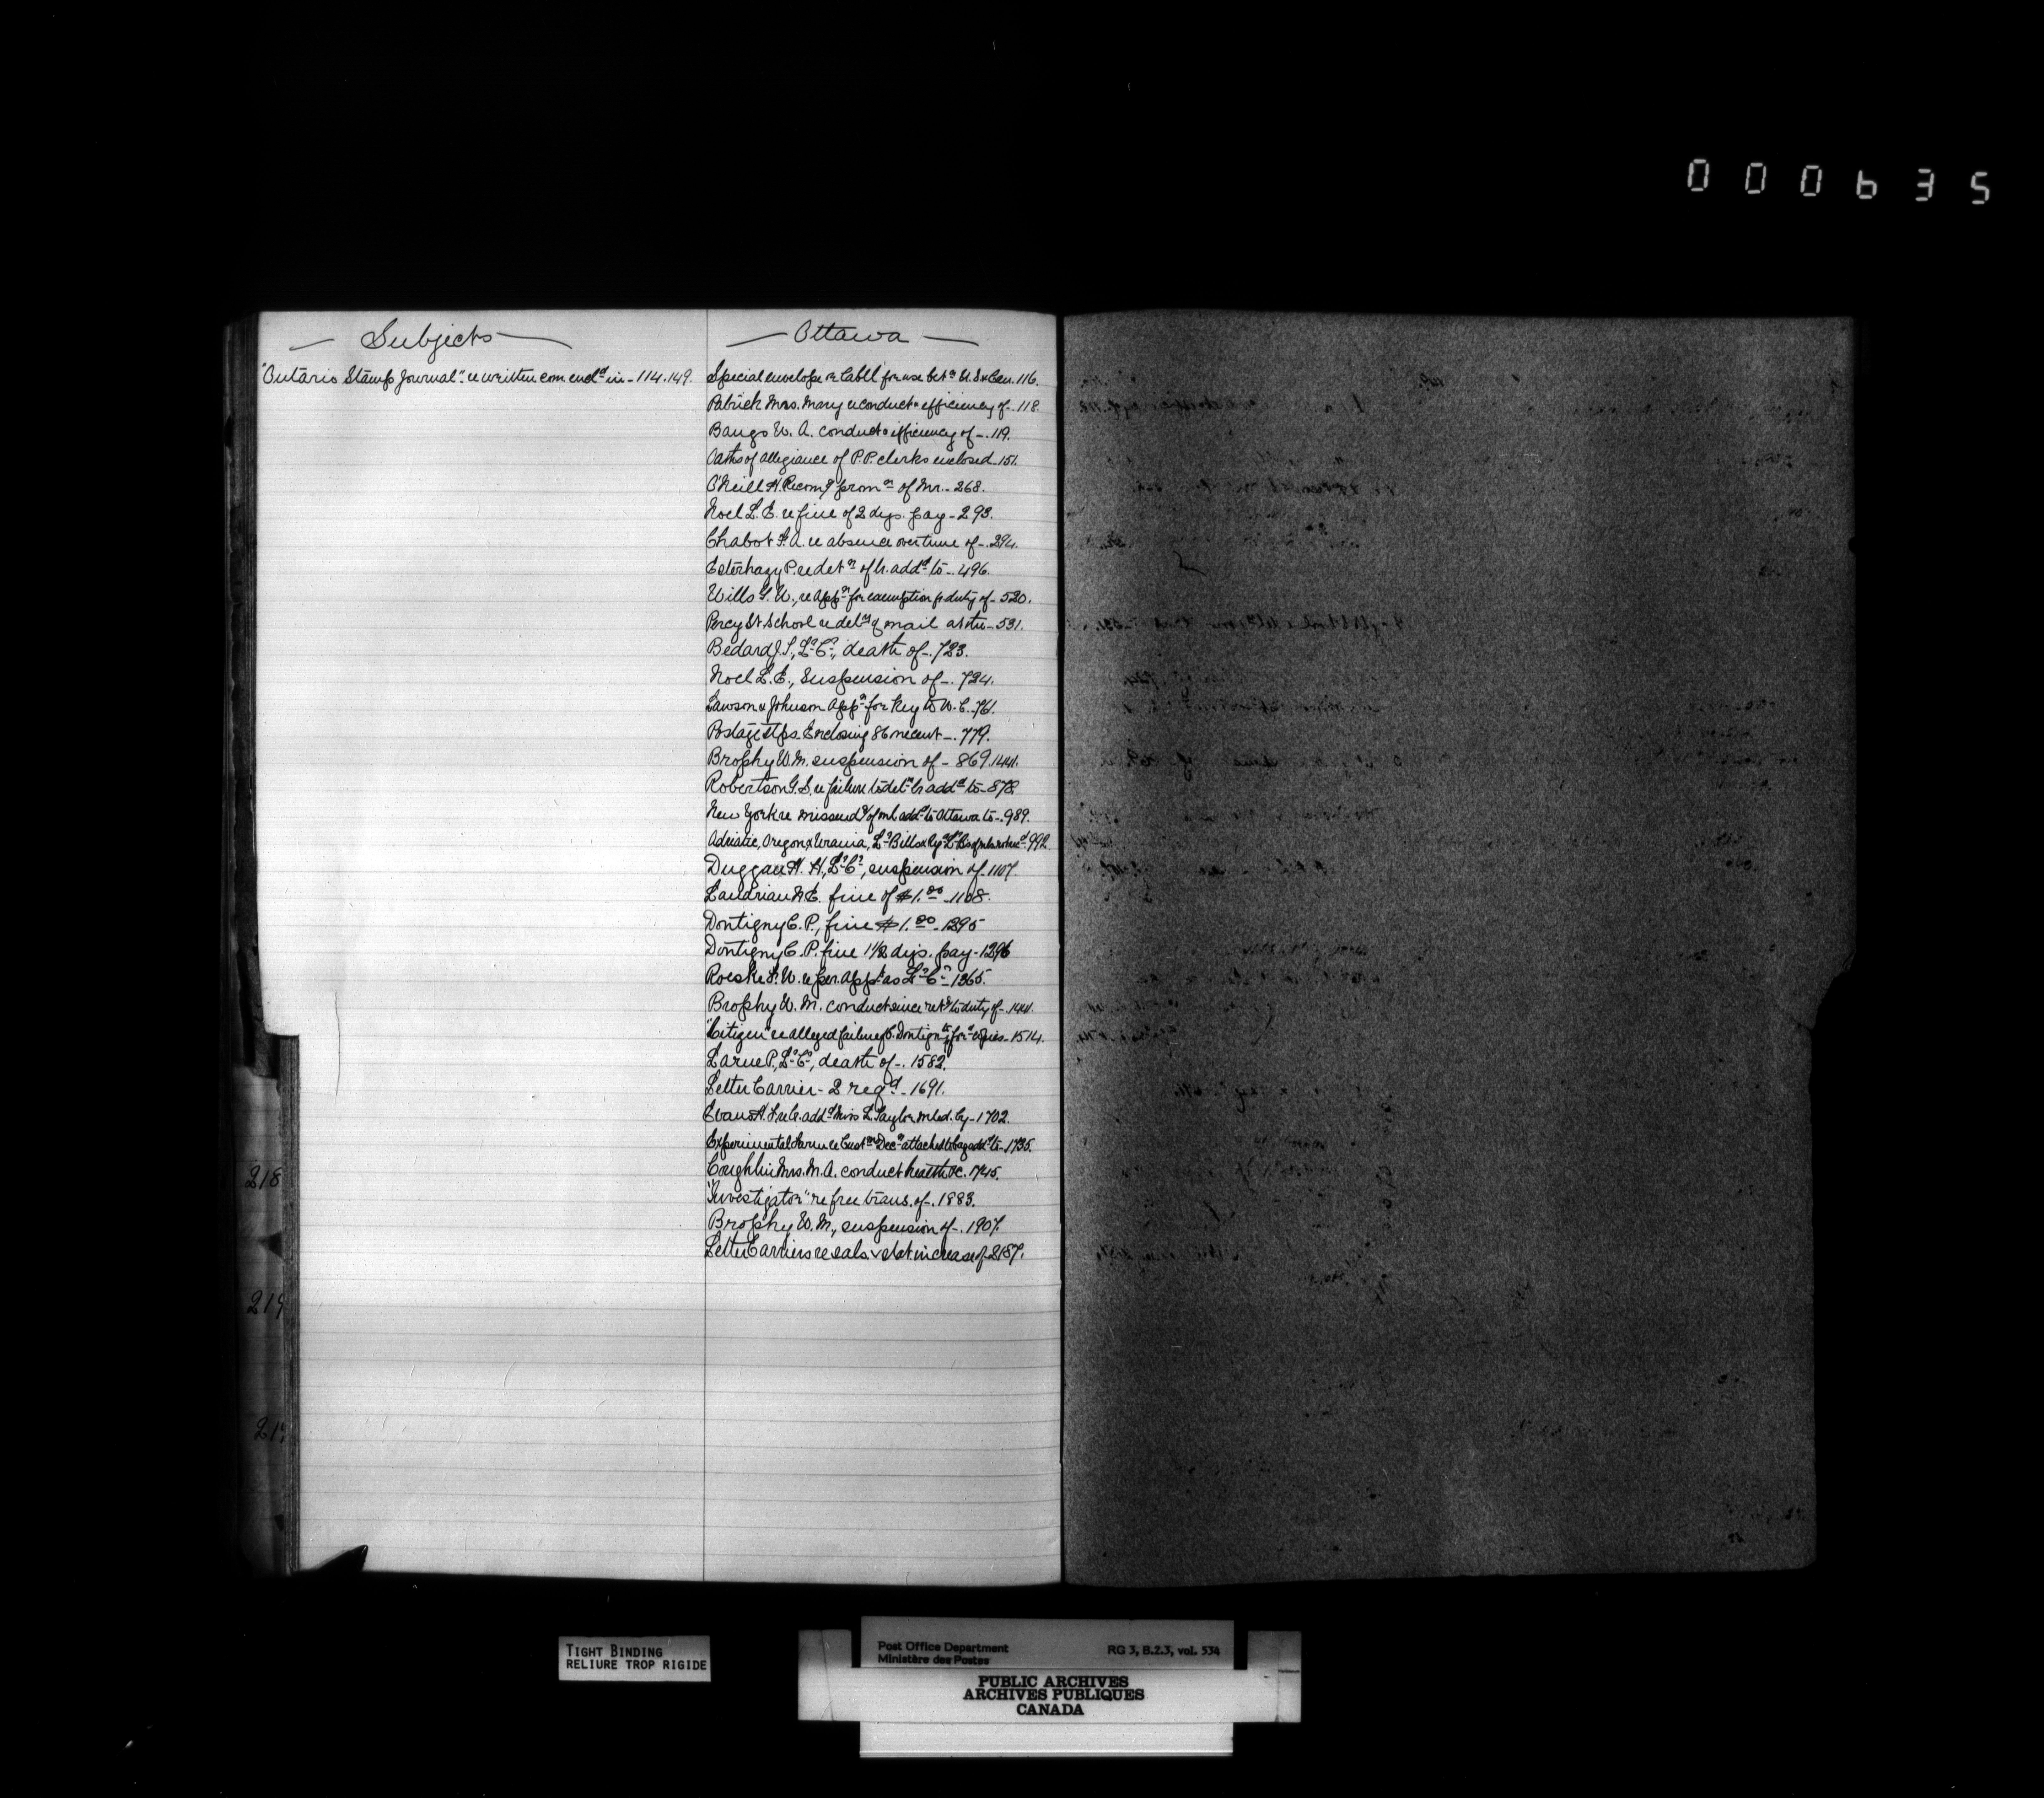 000635
Subjects
"Ontario Stamp Journal" re written com encld in - 114.149.
Ottawa
Special envelope or label for use betn U.S & Can. 116.
Patrick Mrs. Mary re conduct & efficiency of - 118.
Bangs W. A. conduct & efficiency of - 119.
Oaths of allegiance of P.P. clerks enclosed - 151.
O'Neill H. Recomg promn of Mr. - 268.
Noel L. E. re fine of 2 dys. pay - 293.
Chabot F. A. re absence overtime of - 294.
Esterhazy P. re detn of lr. addd to - 496.
Wills G. W., re appn for exemption fr duty of - 520.
Percy St School re dely of mail at the - 531.
Bedard J. S., Lr Cr, death of - 723.
Noel L. E., suspension of - 724.
Lawson & Johnson appn for key to W. C. 761.
Postage stps. Enclosing 86 uncent - 779.
Brophy W. M. suspension of - 869. 1441.
Robertson G. S. re failure to delr lr addd to - 878
New York re missendg of ml addd to Ottawa to - 989.
Adriatic, Oregon & Urania, Lr Bills & Reg 992.
Duggan H. H., Lr Cr, suspension of - 1107.
Landriau N. E. fine of $1.00 - 1108.
Dontigny C. P., fine $1.00 - 1295
Dontigny C. P. fine 1 1/2 dys. pay - 1296
Roeske F. W. re per. appt as Lr Cr - 1365.
Brophy W. M. conduct since retg to duty of - 1441.
"Citizen" re alleged failure of C. Dontigny copies - 1514.
Larue P., Lr Cr, death of - 1582.
Letter Carrier - 2 reqd - 1691.
Evans H. F. re lr. addd Miss L. Taylor mled. by - 1702.
Experimental Farm re Custms Decn attached to bag addd to - 1735.
Coughlin Mrs. M. A. conduct health &c. 1745.
"Investigator" re free trans. of - 1883.
Brophy W. M., suspension of - 1907.
Letter Carriers re sals. & stat increase of 2187.
218
219
21
TIGHT BINDING
RELIURE TROP RIGIDE
Post Office Department RG 3, B.2.3, vol. 534
Ministère des Postes
PUBLIC ARCHIVES
ARCHIVES PUBLIQUES
CANADA